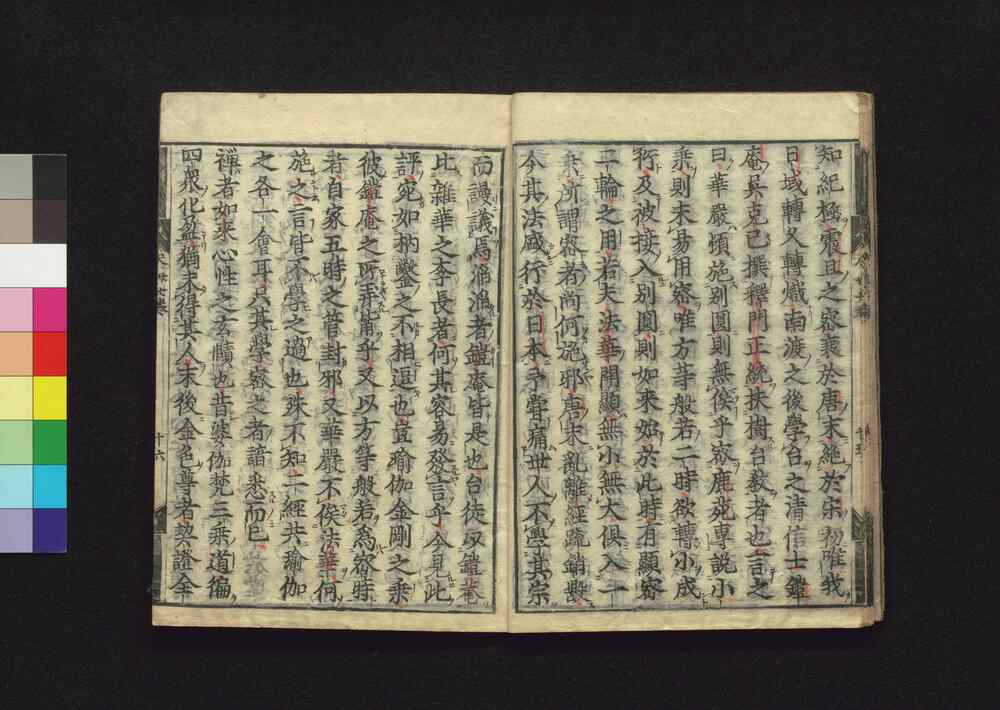 知紀極震旦之密衰於唐末絶於宋初唯我
日域轉久轉熾南渡之後學台之清信士鎧
庵吳克己撰釋門正統抹樹台教者也言之
曰華嚴頓施別圓則無俟乎密鹿苑專說小
乘則未易用密唯方等般若二時欲轉小成
衍及被接入別圓則如來始於此時有顯密
二輪之用若夫法華開顯無小無大俱入一
乘所謂密者尚何施邪唐末亂離經疏銷毀
今其法盛行於日本予嘗痛世人不寧其宗
而謾議焉滔滔者鎧庵皆是也台徒取鎧菴
比雜華之李長者何其容易發言乎今見此
評宛如枘鑿之不相逗也豈瑜伽金剛之乘
彼鎧庵之所弄爾乎又以方等般若為密時
者自家五時之管封邪又華嚴不俟法華何
施之言皆不學之過也殊不知二經共瑜伽
之各一會耳只其學密之者諳悉而已
禪者如來心性之玄賾也昔婆伽梵三乘道徧
四衆化盈猶未得其人末後金色尊者契證全
十六